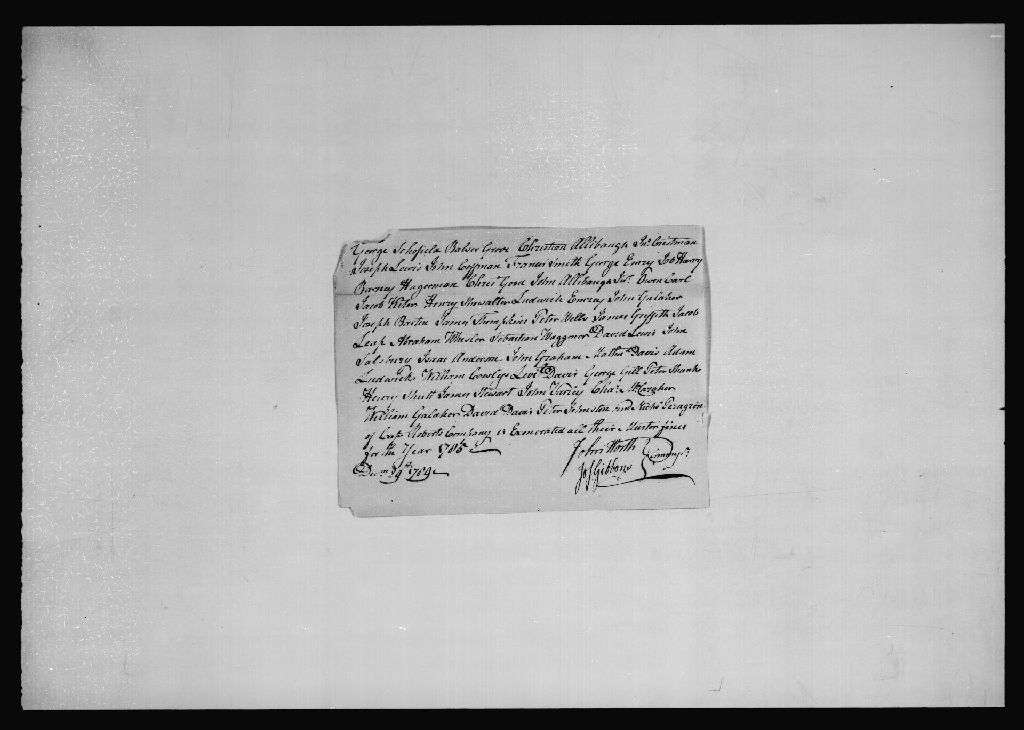 George Schofield Balser Grove Christian Allebaugh Jno. Crestman
Joseph Lewis John Coffman Francis Smith George Emry Job Harvy
Barney Hagerman Chris Good John Allebaugh Jnr. Owen Carl
Jacob Henry Showalter Ludwick Emrey John Galaher
Joseph Barten James Thompkins Peter Wells James Griffith Jacob
Leaf Abraham Wheeler Sebastian Waggoner David Lewis John
Salsbury Isaac Anderson John Graham Mathw Davis Adam
Ludwicks William Cowslys Levi Davis George Gill Peter Shanks
Henry Shutt James Stewart John Varley Chas. Maraher
William Galaher David Davis Peter Johnston and Nichs
of Capt. Roberts Company is Exonerated all their Muster fines
for the Year 1785
Decm. 29th 1789
John Worth
Jos Gibbons